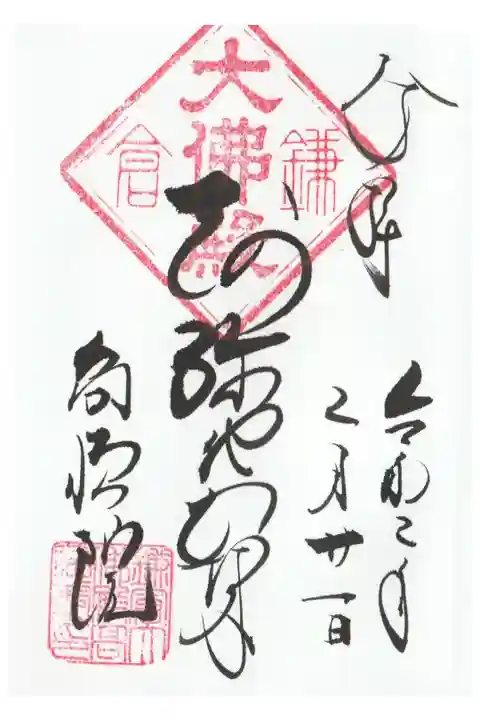 奉拝
令和二年
二月廿一日
大佛殿
鎌倉
阿弥陀如来
高徳院